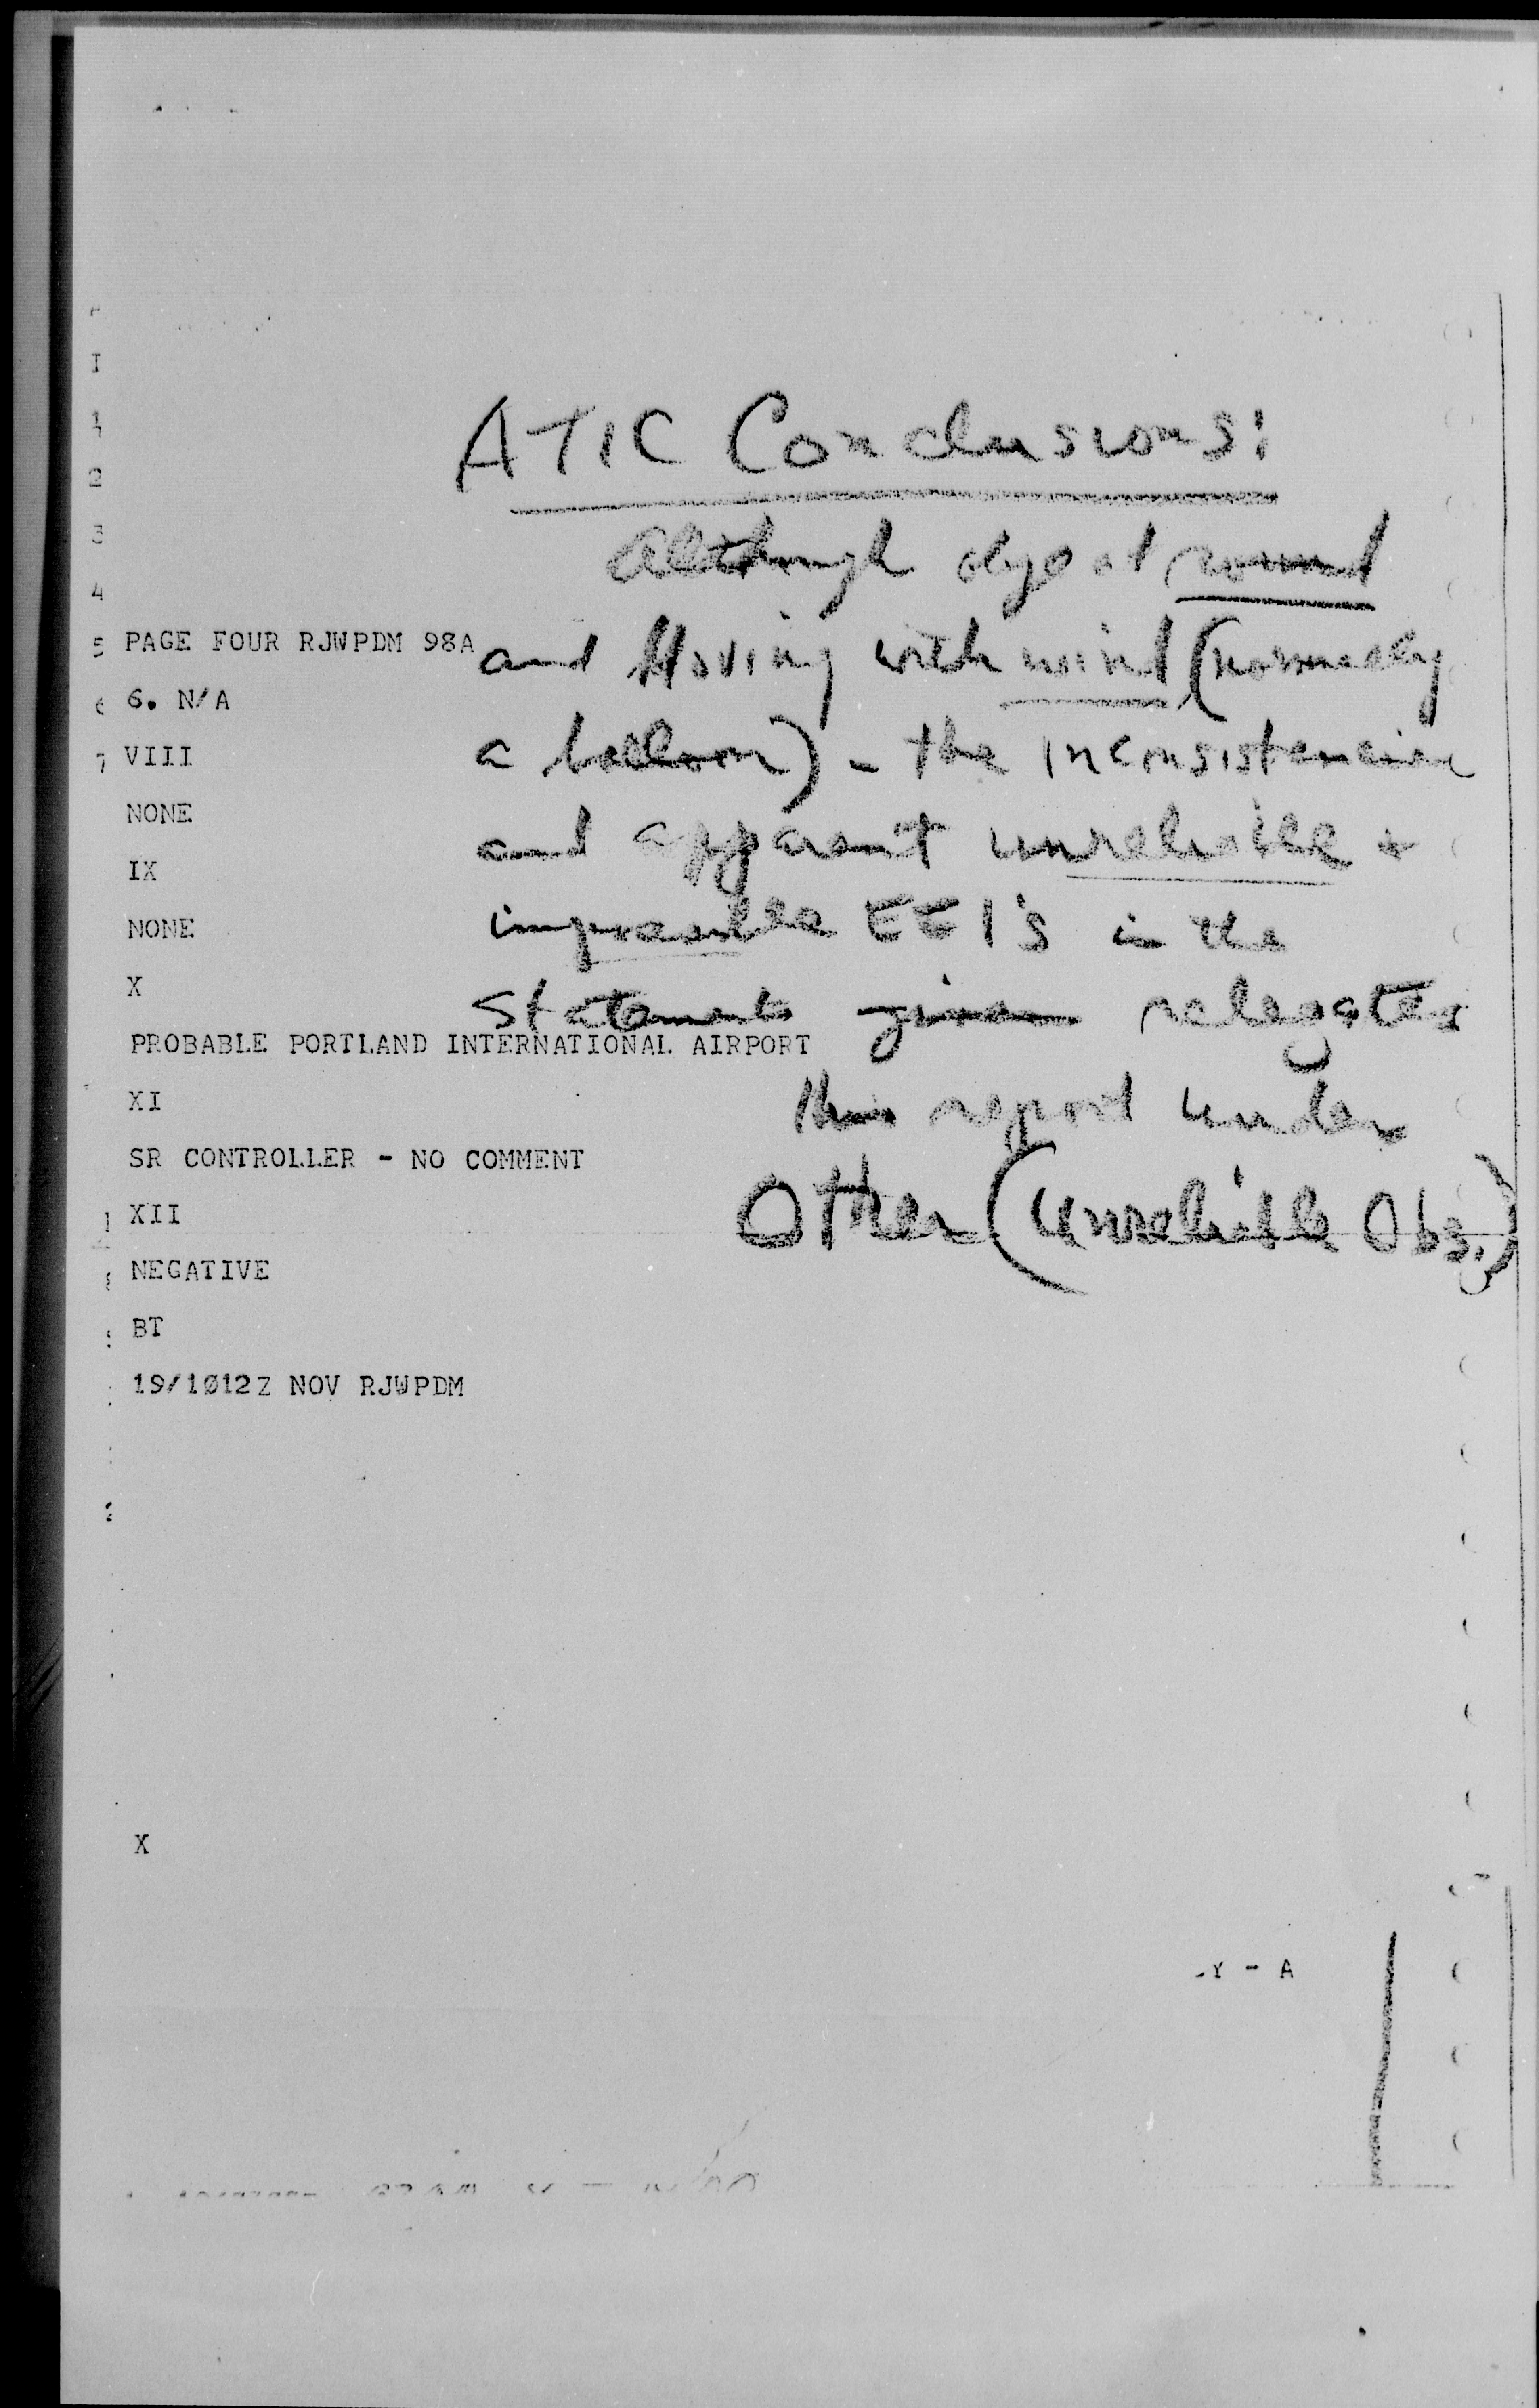 ATIC Conclusions:
Although object round
and Moving with wind (normally
a balloon) - the inconsistencies
and apparent unreliable +
impossible EEI's in the
statements given relegates
this report under
Other (Unreliable Obs.)
PAGE FOUR RJWPDM 98A
6. N/A
VIII
NONE
IX
NONE
X
PROBABLE PORTLAND INTERNATIONAL AIRPORT
XI
SR CONTROLLER - NO COMMENT
XII
NEGATIVE
BT
19/1Ø12Z NOV RJWPDM
X
Y - A
I
1
2
3
4
5
6
7